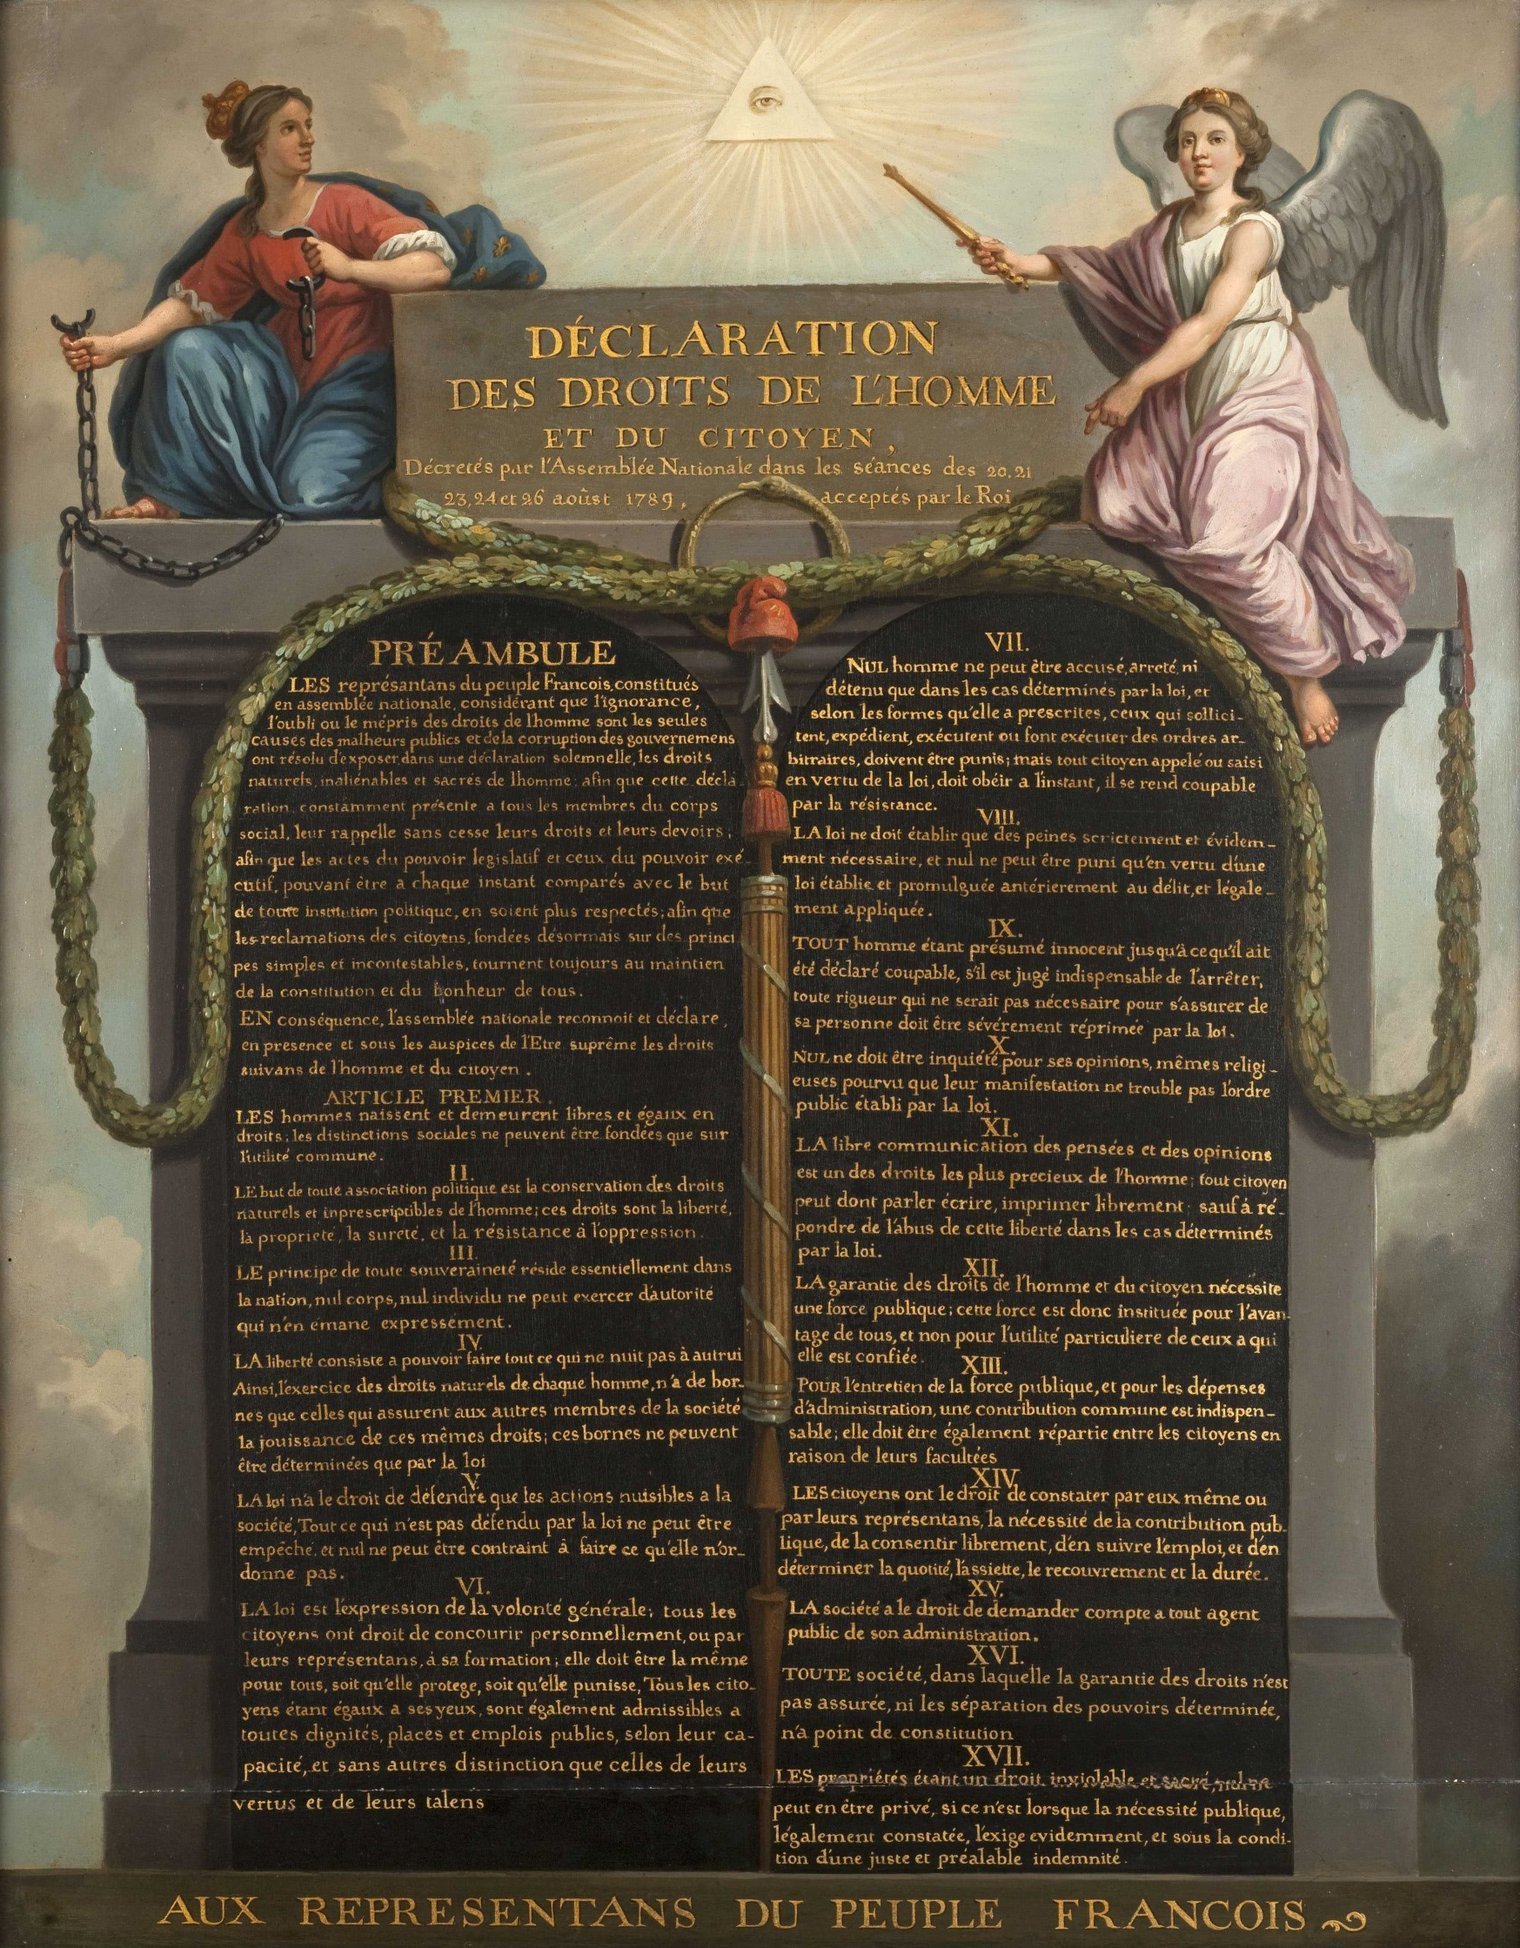 DÉCLARATION
DES DROITS DE L'HOMME
ET DU CITOYEN,
Décretés par l'Assemblée Nationale dans les séances des 20, 21
23, 24 et 26 aoûst 1789, acceptés par le Roi
PRÉAMBULE
LES représantans du peuple Francois, constitués
en assemblée nationale, considérant que l'ignorance,
l'oubli ou le mépris des droits de l'homme sont les seules
causes des malheurs publics et de la corruption des gouvernemens
ont résolu d'exposer dans une déclaration solemnelle, les droits
naturels, inaliénables et sacrés de l'homme; afin que cette décla
ration, constamment présente a tous les membres du corps
social, leur rappelle sans cesse leurs droits et leurs devoirs;
afin que les actes du pouvoir legislatif et ceux du pouvoir exé-
cutif, pouvant être a chaque instant comparés avec le but
de toute institution politique, en soient plus respectés; afin que
les reclamations des citoyens, fondées désormais sur des princi
pes simples et incontestables, tournent toujours au maintien
de la constitution et du bonheur de tous.
EN conséquence, l'assemblée nationale reconnoit et déclare,
en presence et sous les auspices de l'Etre suprême les droits
suivans de l'homme et du citoyen.
ARTICLE PREMIER.
LES hommes naissent et demeurent libres et égaux en
droits; les distinctions sociales ne peuvent être fondées que sur
l'utilité commune.
II.
LE but de toute association politique est la conservation des droits
naturels et inprescriptibles de l'homme; ces droits sont la liberté,
la propriété, la sureté, et la résistance à l'oppression.
III.
LE principe de toute souveraineté réside essentiellement dans
la nation, nul corps, nul individu ne peut exercer d'autorité
qui n'en émane expressément.
IV.
LA liberté consiste a pouvoir faire tout ce qui ne nuit pas à autrui
Ainsi, l'exercice des droits naturels de chaque homme, n'a de bor-
nes que celles qui assurent aux autres membres de la société
la jouissance de ces mêmes droits; ces bornes ne peuvent
être déterminées que par la loi
V.
LA loi n'a le droit de défendre que les actions nuisibles a la
société, Tout ce qui n'est pas défendu par la loi ne peut être
empêché, et nul ne peut être contraint à faire ce qu'elle n'or-
donne pas.
VI.
LA loi est l'expression de la volonté générale; tous les
citoyens ont droit de concourir personnellement, ou par
leurs représentans, à sa formation; elle doit être la même
pour tous, soit qu'elle protege, soit qu'elle punisse, Tous les cito-
yens étant égaux a ses yeux, sont également admissibles a
toutes dignités, places et emplois publics, selon leur ca-
pacité, et sans autres distinction que celles de leurs
vertus et de leurs talens
VII.
NUL homme ne peut être accusé, arreté, ni
détenu que dans les cas déterminés par la loi, et
selon les formes qu'elle a prescrites, ceux qui sollici-
tent, expédient, exécutent ou font exécuter des ordres ar-
bitraires, doivent être punis; mais tout citoyen appelé ou saisi
en vertu de la loi, doit obéir a l'instant, il se rend coupable
par la résistance.
VIII.
LA loi ne doit établir que des peines strictement et évidem-
ment nécessaire, et nul ne peut être puni qu'en vertu d'une
loi établie et promulguée antérierement au délit, et légale-
ment appliquée.
IX.
TOUT homme étant présumé innocent jusqu'à ce qu'il ait
été déclaré coupable, s'il est jugé indispensable de l'arrêter,
toute rigueur qui ne serait pas nécessaire pour s'assurer de
sa personne doit être sévèrement réprimée par la loi.
X.
NUL ne doit être inquiété pour ses opinions, mêmes religi-
euses pourvu que leur manifestation ne trouble pas l'ordre
public établi par la loi.
XI.
LA libre communication des pensées et des opinions
est un des droits les plus precieux de l'homme; tout citoyen
peut dont parler écrire, imprimer librement; sauf à ré-
pondre de l'abus de cette liberté dans les cas déterminés
par la loi.
XII.
LA garantie des droits de l'homme et du citoyen nécessite
une force publique; cette force est donc instituée pour l'avan-
tage de tous, et non pour l'utilité particuliere de ceux a qui
elle est confiée.
XIII.
POUR l'entretien de la force publique, et pour les dépenses
d'administration, une contribution commune est indispen-
sable; elle doit être également répartie entre les citoyens en
raison de leurs facultées
XIV.
LES citoyens ont le droit de constater par eux même ou
par leurs représentans, la nécessité de la contribution pub-
lique, de la consentir librement, d'en suivre l'emploi, et d'en
déterminer la quotité, l'assiette, le recouvrement et la durée.
XV.
LA société a le droit de demander compte a tout agent
public de son administration.
XVI.
TOUTE société, dans laquelle la garantie des droits n'est
pas assurée, ni les séparation des pouvoirs déterminée,
n'a point de constitution
XVII.
LES propriétés étant un droit inviolable et sacré, nul ne
peut en être privé, si ce n'est lorsque la nécessité publique,
légalement constatée, l'exige evidemment, et sous la condi-
tion d'une juste et préalable indemnité.
AUX REPRESENTANS DU PEUPLE FRANCOIS